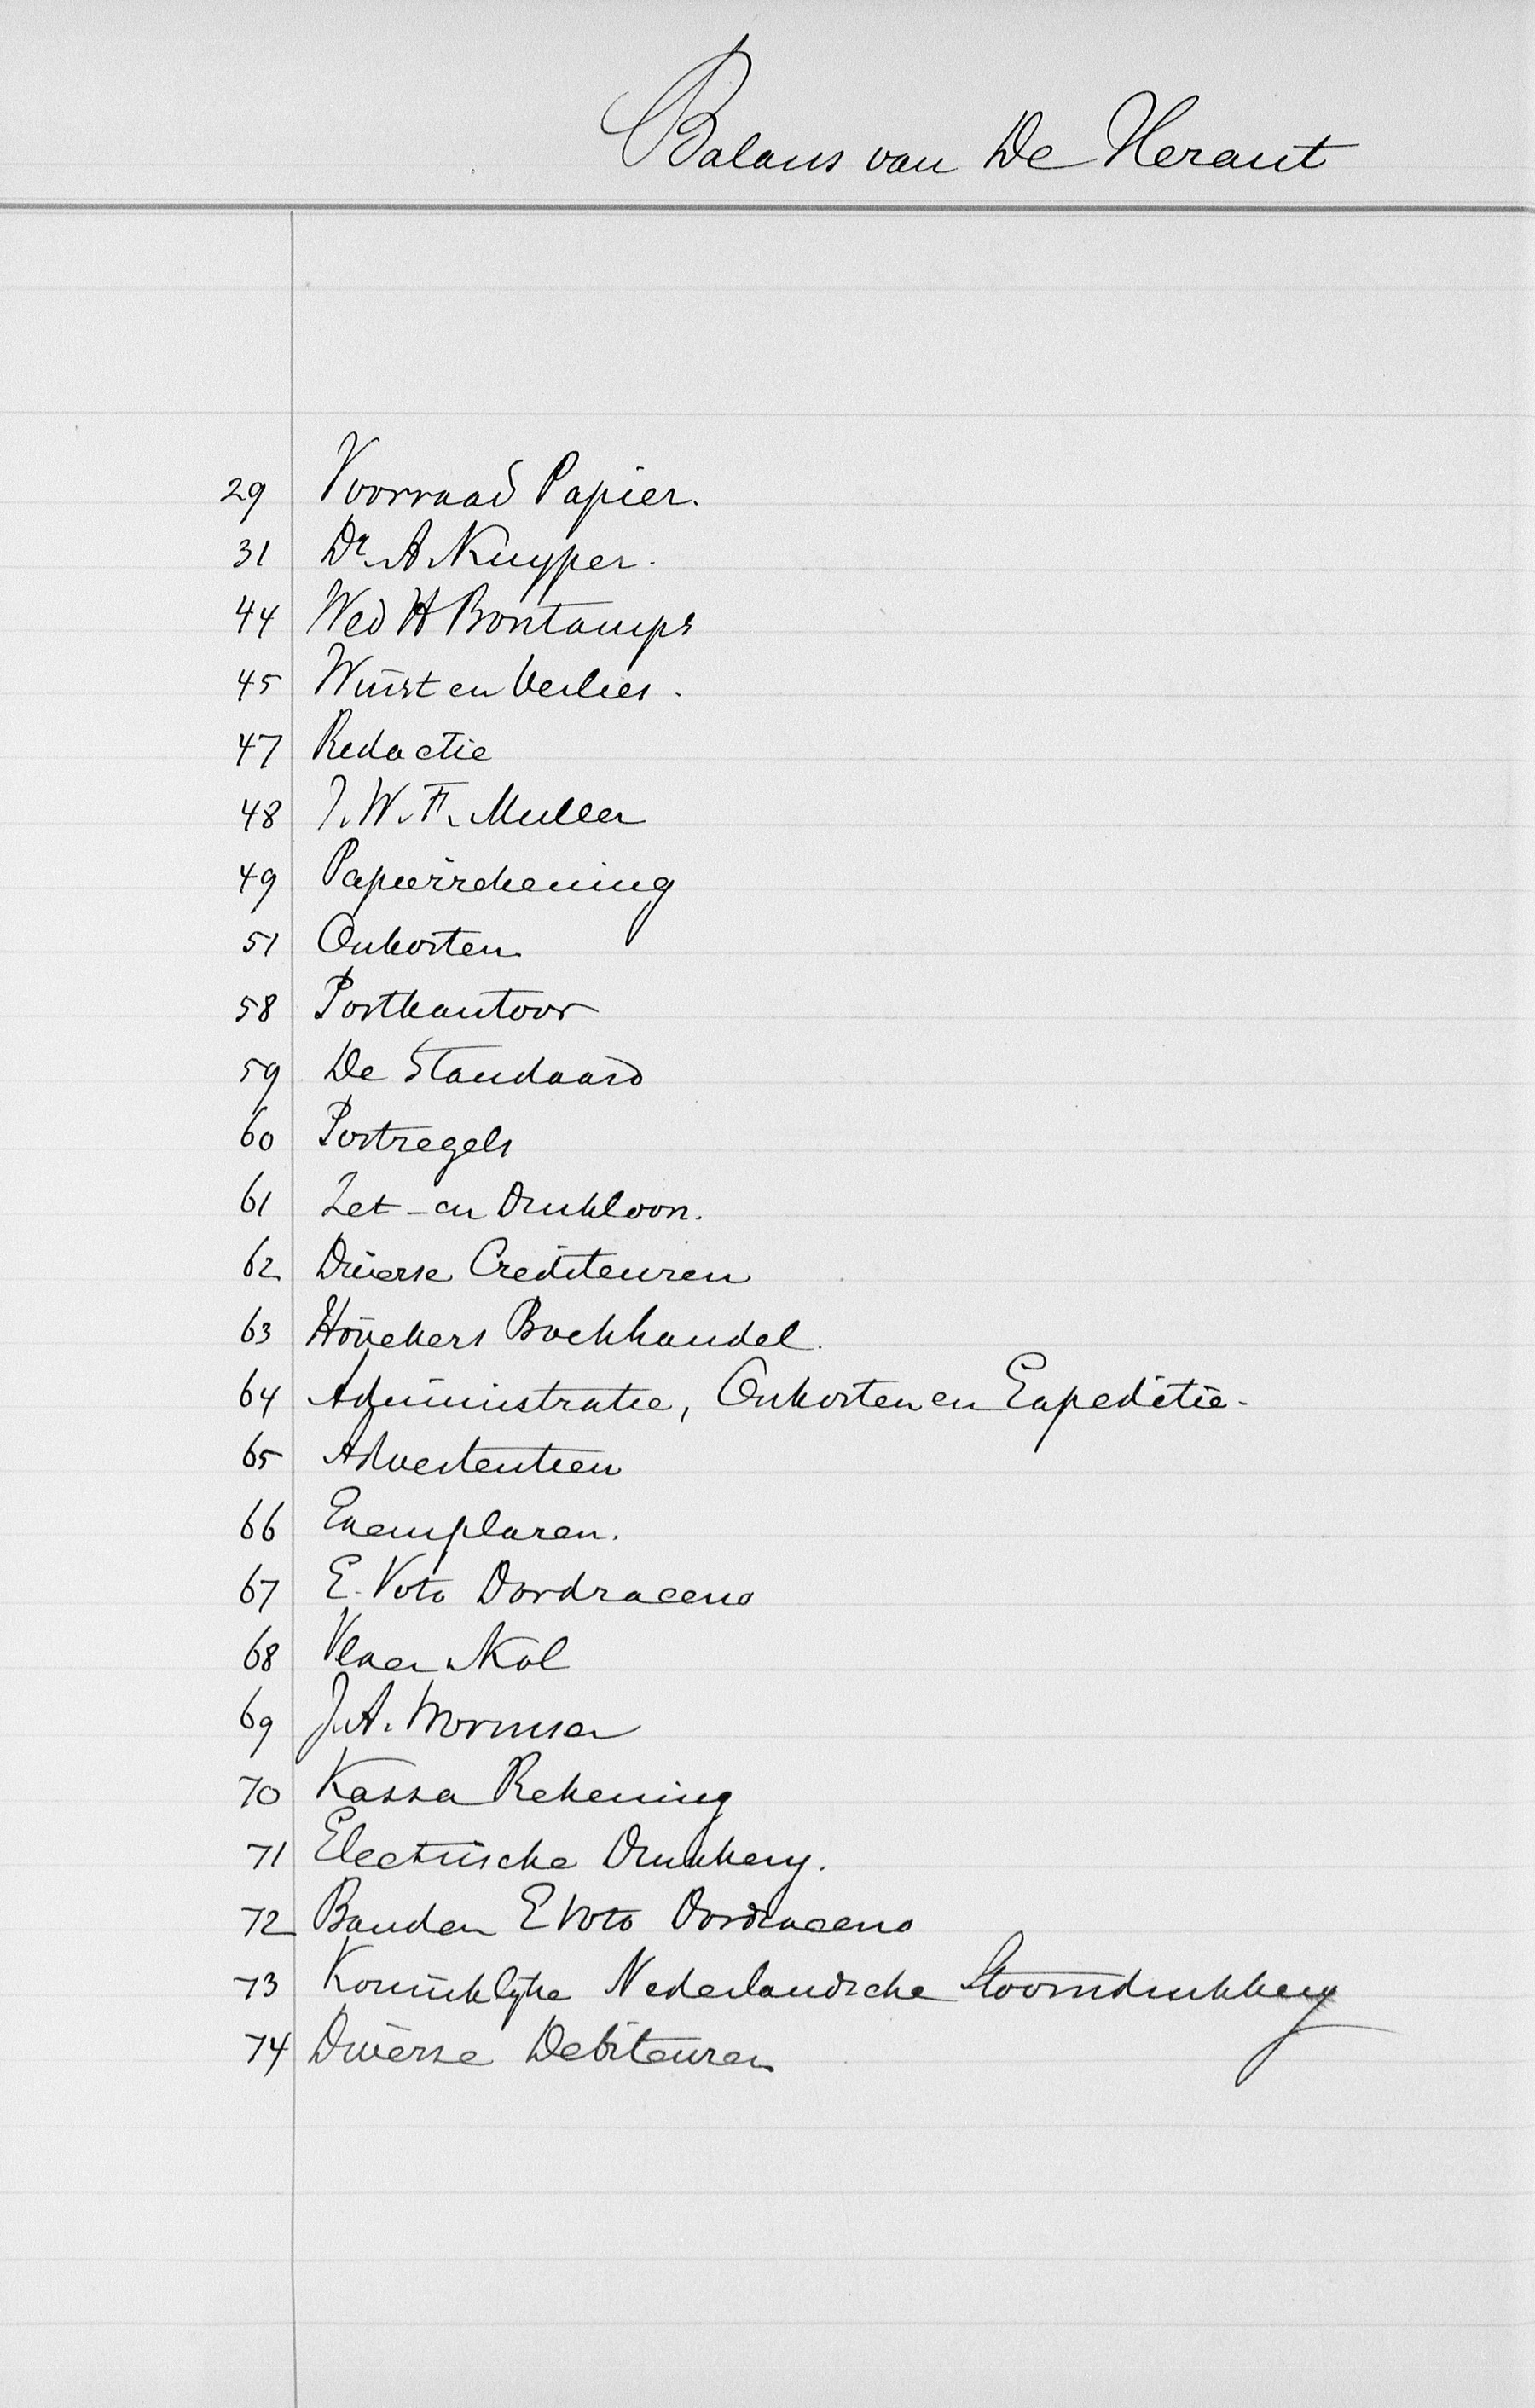 Balans van De Heraut
29 Voorraad Papier.
31 Dr. A. Kuyper.
44 Wed H Bontamps
45 Winst en Verlies.
47 Redactie
48 J. W. F. Muller
49 Papierrekening
51 Onkosten
58 Postkantoor
59 De Standaard
60 Postzegels
61 Zet- en Drukloon.
62 Diverse Crediteuren
63 Hövekers Boekhandel.
64 Administratie, Onkosten en Expeditie.
65 Advertentien
66 Exemplaren.
67 E. Voto Dordraceno
68 Vlaer Kol
69 J. A. Wormser
70 Kassa Rekening
71 Electrische Drukkery.
72 Banden E Voto Dordraceno
73 Koninklyke Nederlandsche Stoomdrukkery
74 Diverse Debiteuren